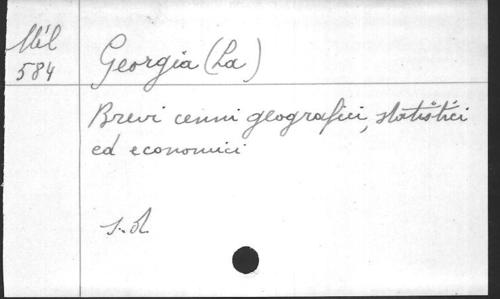 Mél
584
Georgia (La)
Brevi cenni geografici, statistici
ed economici
s.d.